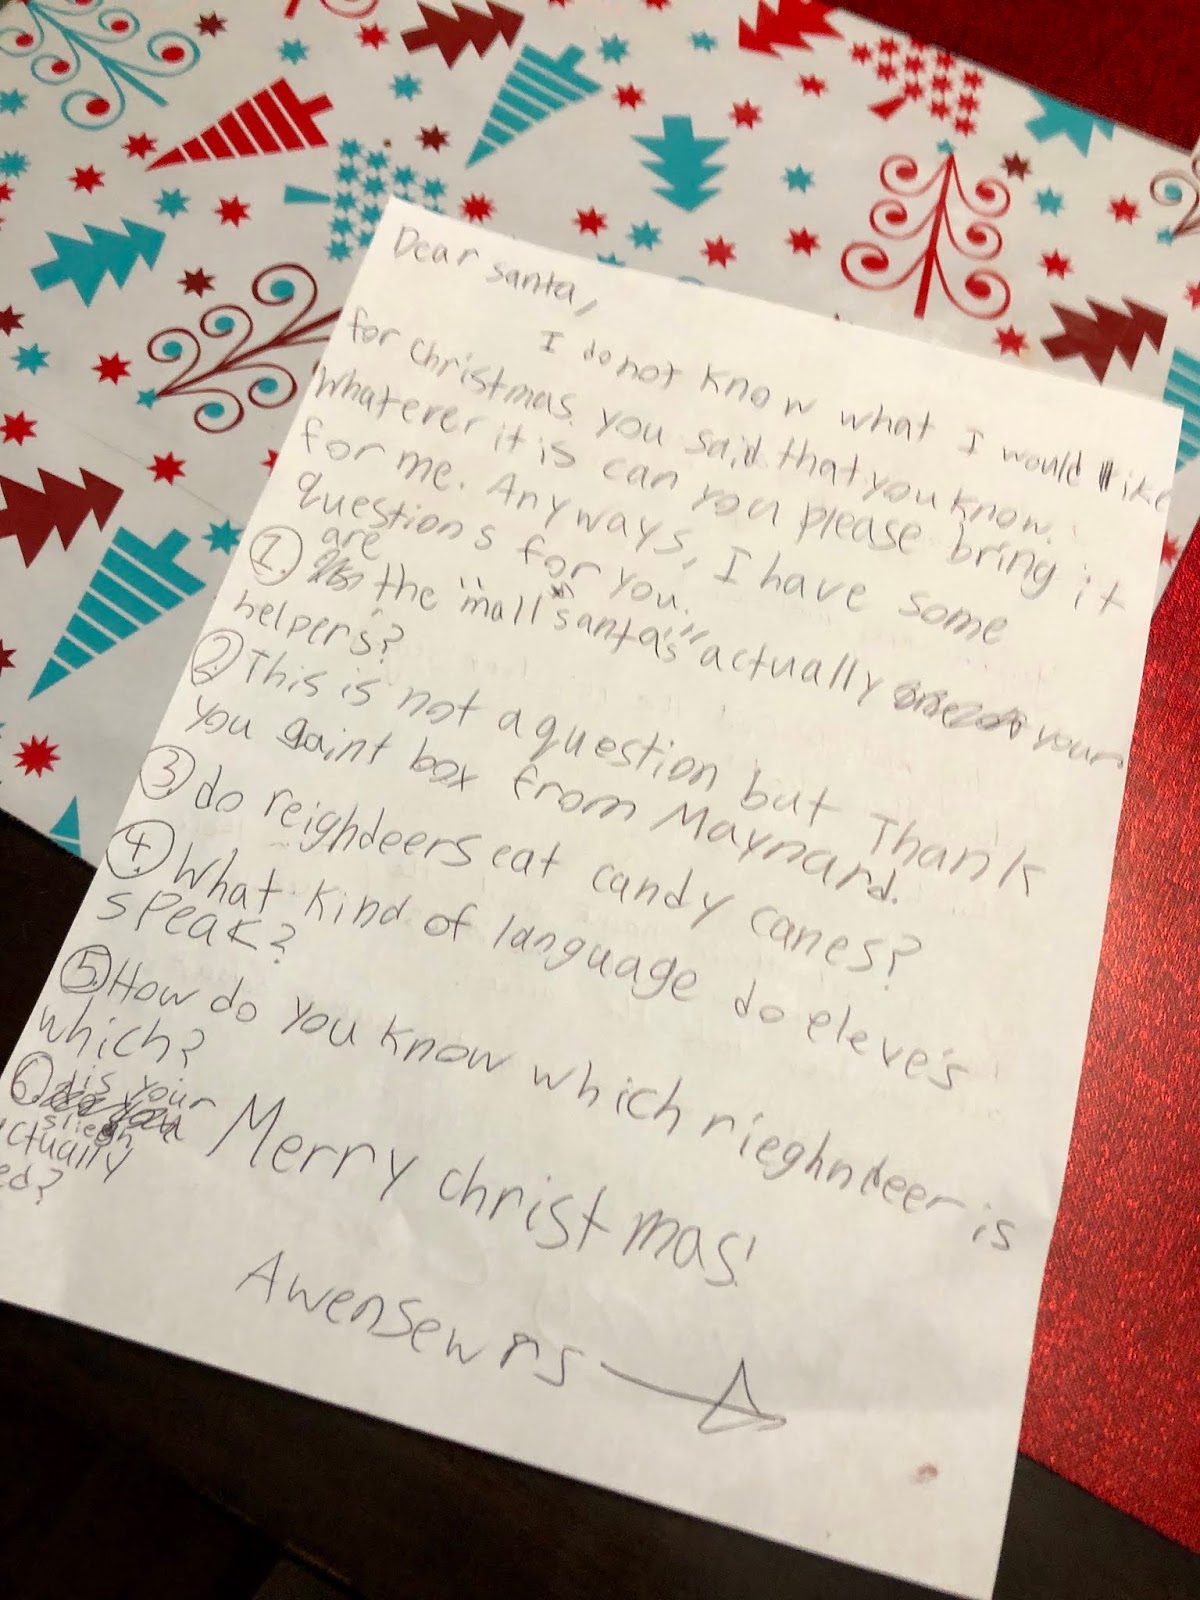 Dear santa,
I do not know what I would like
for christmas. you said that you know.
Whatever it is can you please bring it
for me. Anyways, I have some
questions for you.
1. are the "mall santa's" actually your
helpers?
2. This is not a question but Thank
you Saint box from Maynard.
3. do reighdeers eat candy canes?
4. What kind of language do eleve's
speak?
5. How do you know which rieghndeer is
which?
6. is your
sliegh
actually
ed?
Merry christmas!
Awensewrs